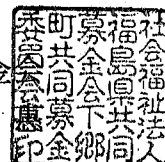 社会福祉法人
福島県共同
募金会下郷
町共同募金
委員会印